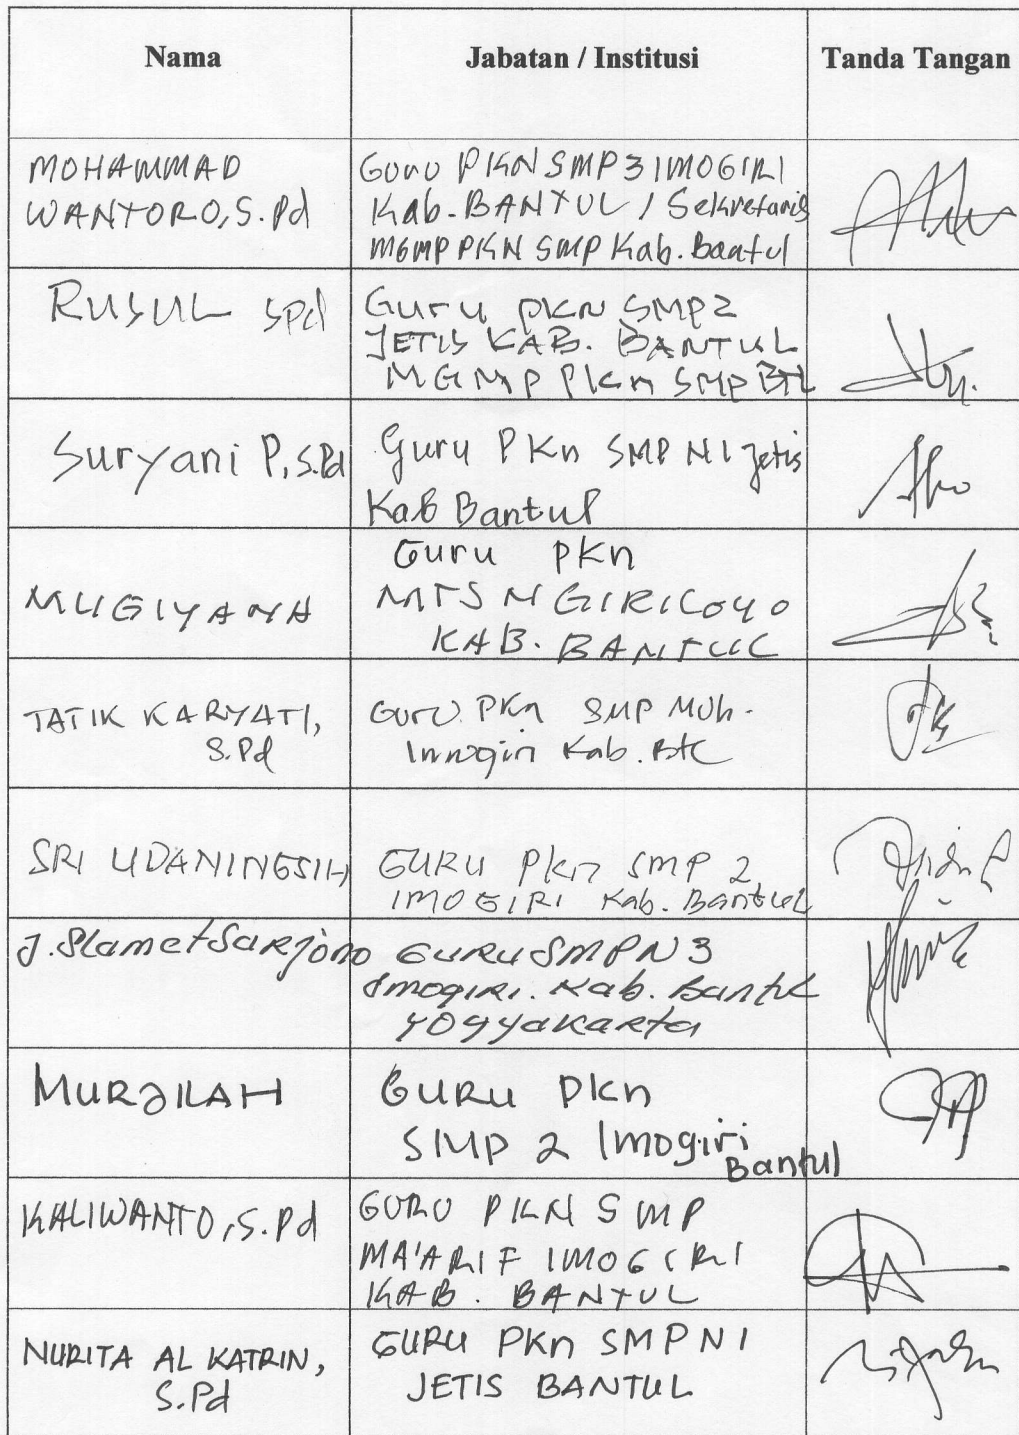 Nama Jabatan / Institusi Tanda Tangan
MOHAMMAD
WANTORO, S.Pd
Guru PKN SMP 3 IMOGIRI
Kab. BANTUL / Sekretaris
MGMP PKN SMP Kab. Bantul
RUSUL Spd
Guru PKN SMP 2
JETIS KAB. BANTUL
MGMP PKn SMP BTL
Suryani P, S.Pd
Guru PKn SMP N 1 Jetis
Kab Bantul
MUGIYANA
Guru PKn
MTS N GIRILOYO
KAB. BANTUL
TATIK KARYATI,
S.Pd
Guru PKn SMP Muh.
Imogiri Kab. Btl
SRI UDANINGSIH
GURU PKn SMP 2
IMOGIRI Kab. Bantul
J. Slamet Sarjono
GURU SMP N 3
Imogiri. Kab. Bantul
Yogyakarta
MURJILAH
GURU PKn
SMP 2 Imogiri
Bantul
KALIWANTO, S.Pd
GURU PKN SMP
MA'ARIF IMOGIRI
KAB. BANTUL
NURITA AL KATRIN,
S.Pd
GURU PKn SMP N 1
JETIS BANTUL